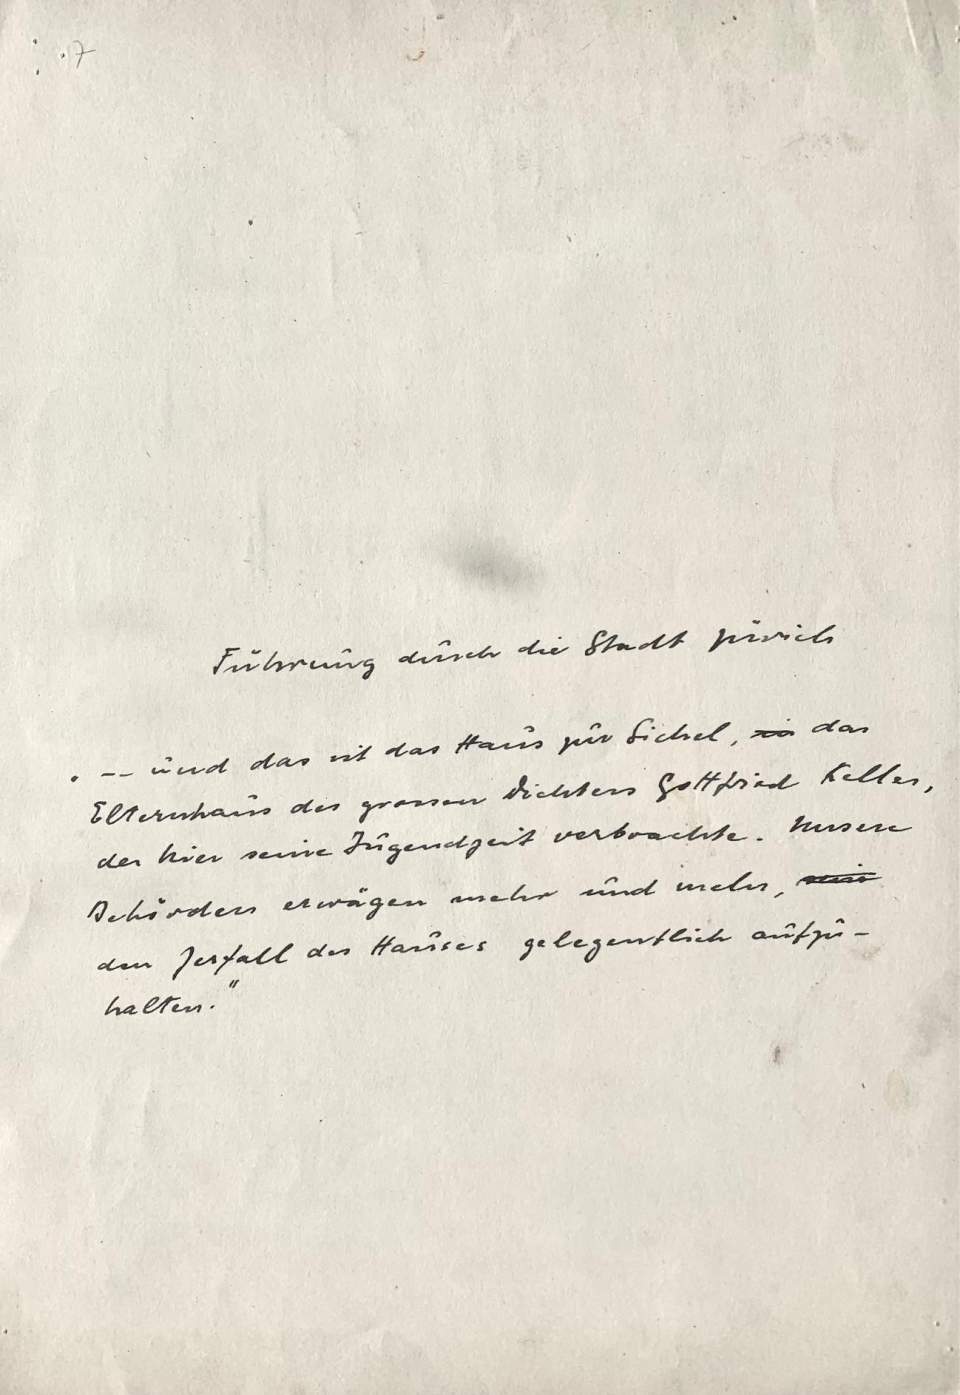 7
Führung durch die Stadt Zürich
. -- und das ist das Haus zur Sichel, das
Elternhaus des grossen Dichters Gottfried Keller,
der hier seine Jugendzeit verbrachte. Unsere
Behörden erwägen mehr und mehr,
den Zerfall des Hauses gelegentlich aufzu-
halten."